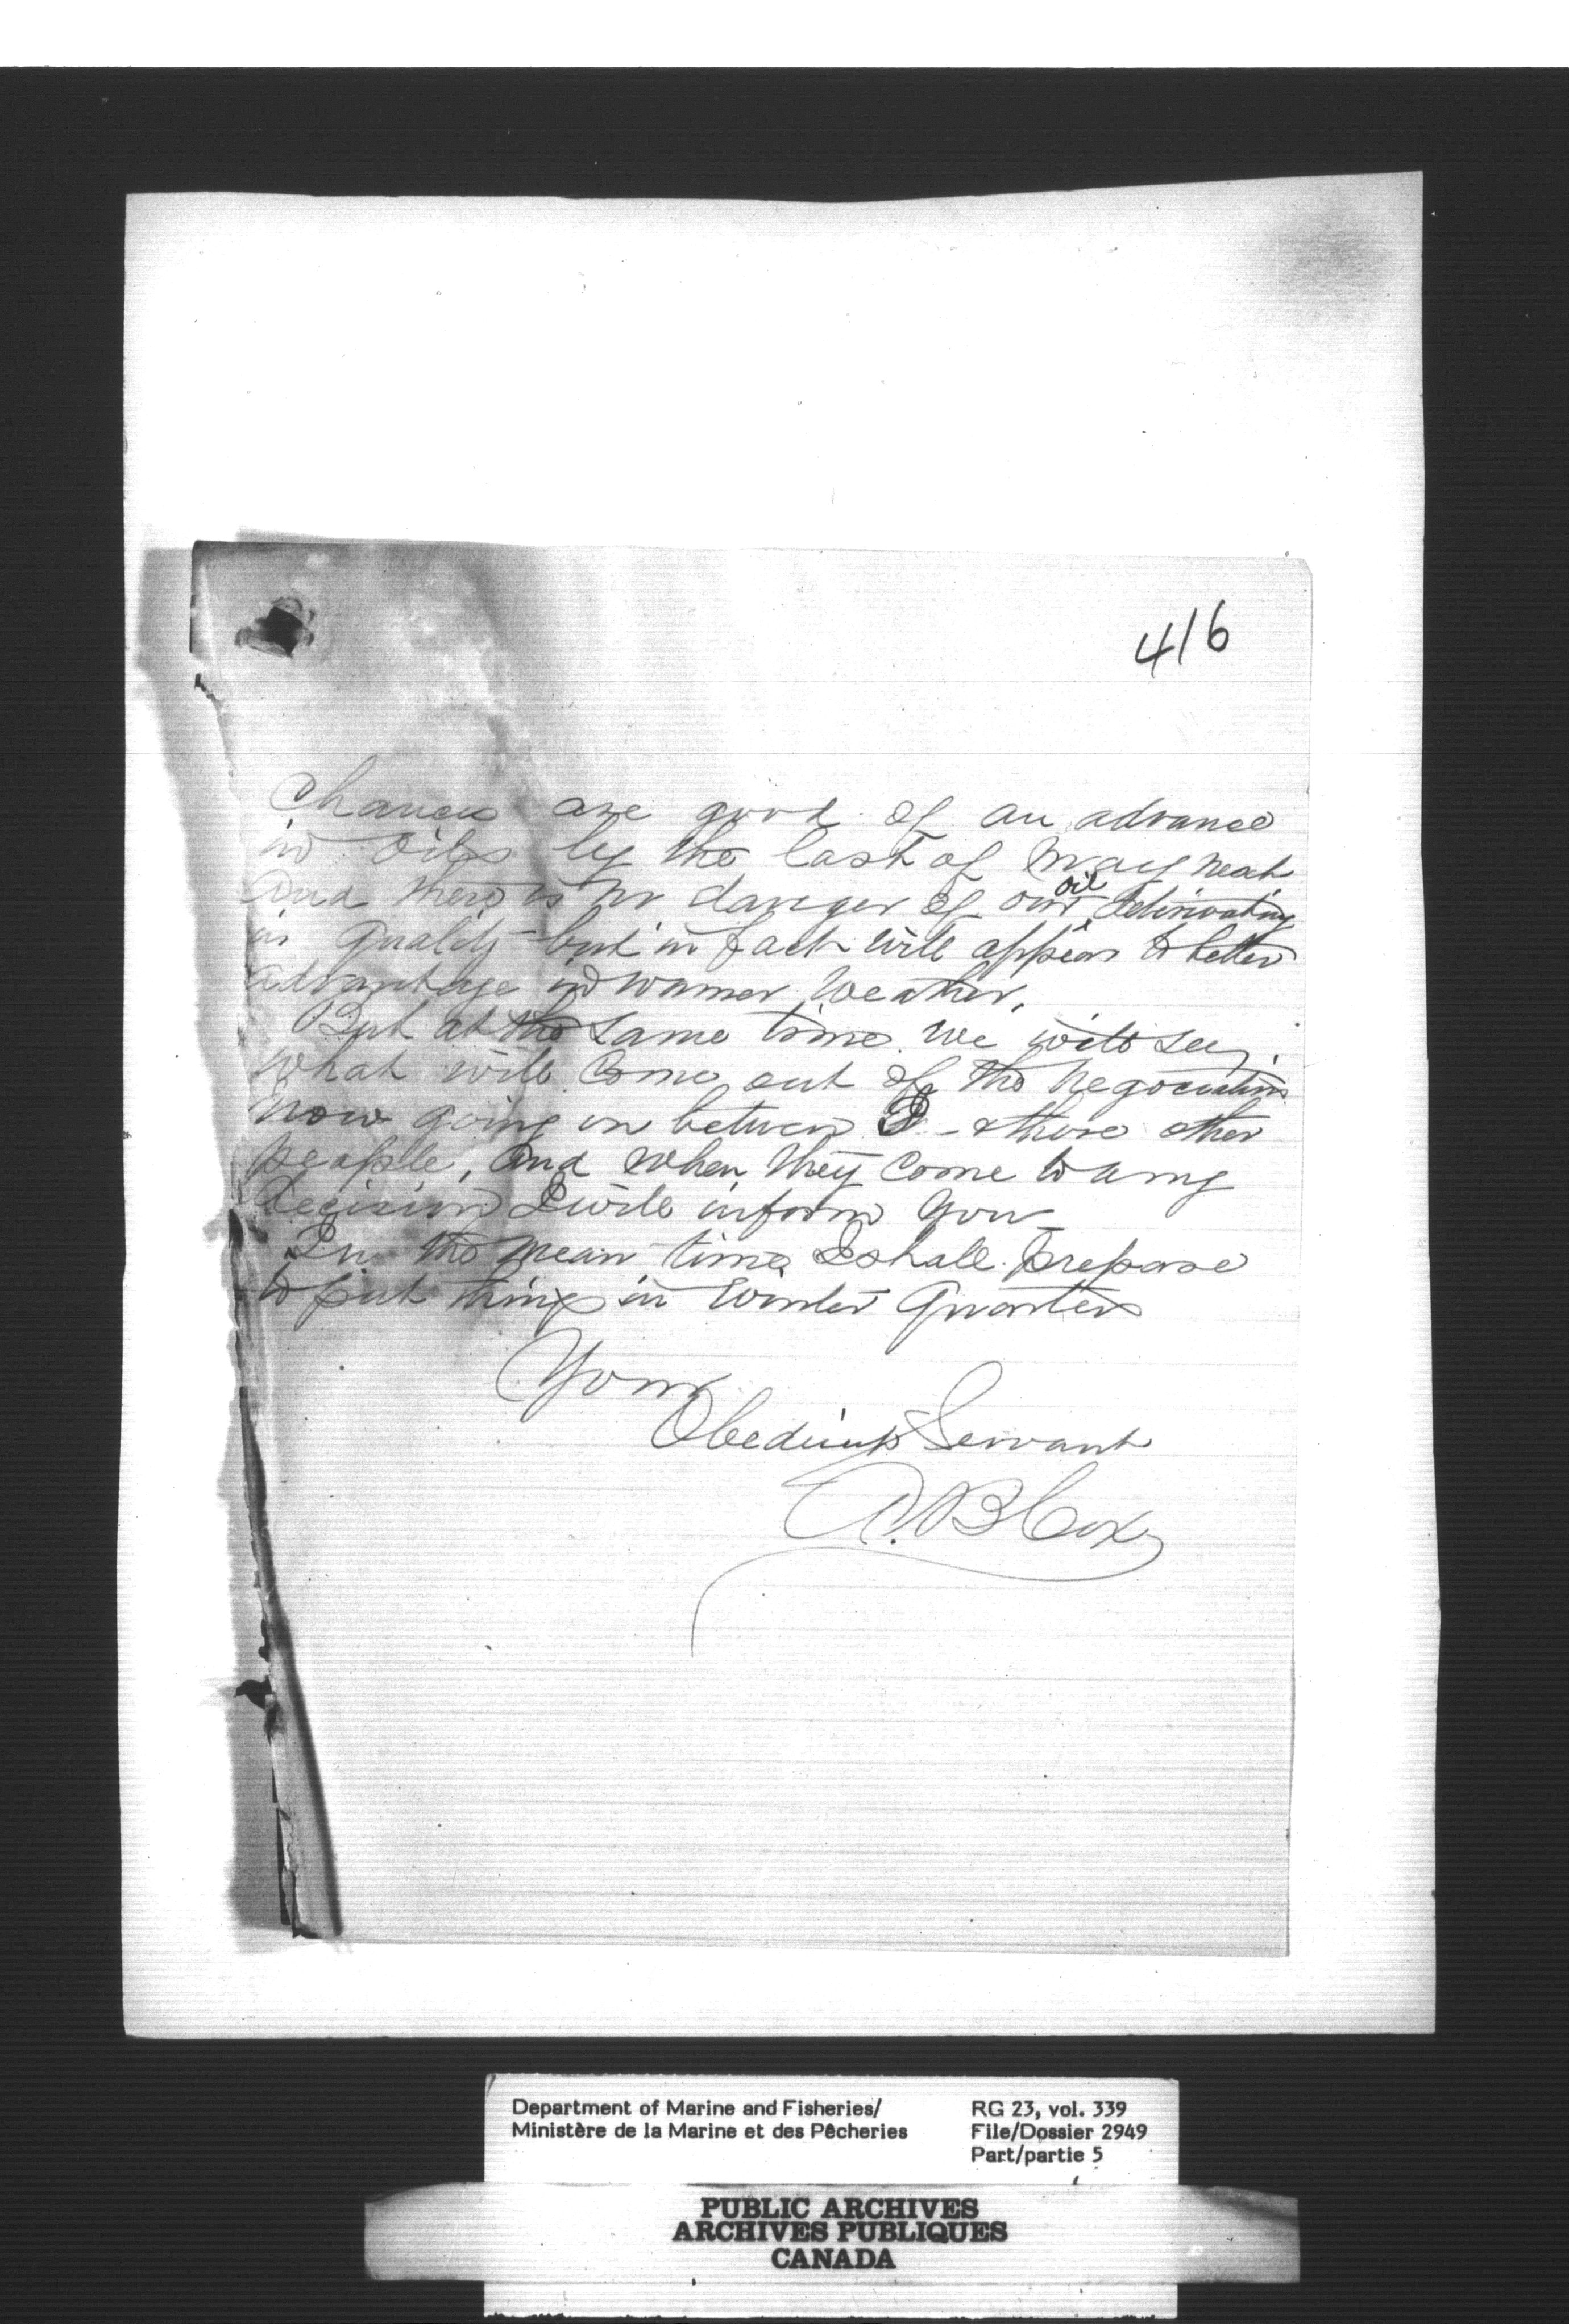 416
Chances are good of an advance
in oils by the last of May next
And there is no danger of our oil
in quality but in fact will appear to better
advantage in warmer weather,
But at the same time we will see,
what will come out of the negociations
now going on between & those other
people, and when they come to any
decision I will inform you
In the mean time I shall prepare
to put things in Winter Quarters
Your
Obedient Servant
A.B Cox
Department of Marine and Fisheries/
Ministère de la Marine et des Pêcheries
RG 23, vol. 339
File/Dossier 2949
Part/partie 5
PUBLIC ARCHIVES
ARCHIVES PUBLIQUES
CANADA